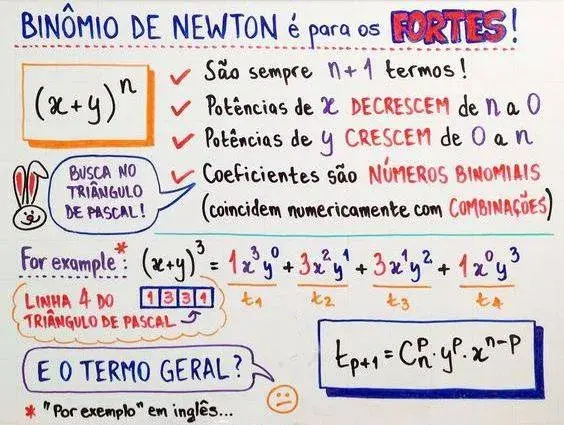 BINÔMIO DE NEWTON é para os FORTES!
(x+y)^n
✓ São sempre n+1 termos!
✓ Potências de x DECRESCEM de n a 0
✓ Potências de y CRESCEM de 0 a n
✓ Coeficientes são NÚMEROS BINOMIAIS
(coincidem numericamente com COMBINAÇÕES)
BUSCA NO
TRIÂNGULO
DE PASCAL!
For example*: (x+y)³ = 1x³y⁰ + 3x²y¹ + 3x¹y² + 1x⁰y³
t₁ t₂ t₃ t₄
LINHA 4 DO 1 3 3 1
TRIÂNGULO DE PASCAL
E O TERMO GERAL?
t_{p+1} = C_n^p · y^p · x^{n-p}
* "Por exemplo" em inglês...